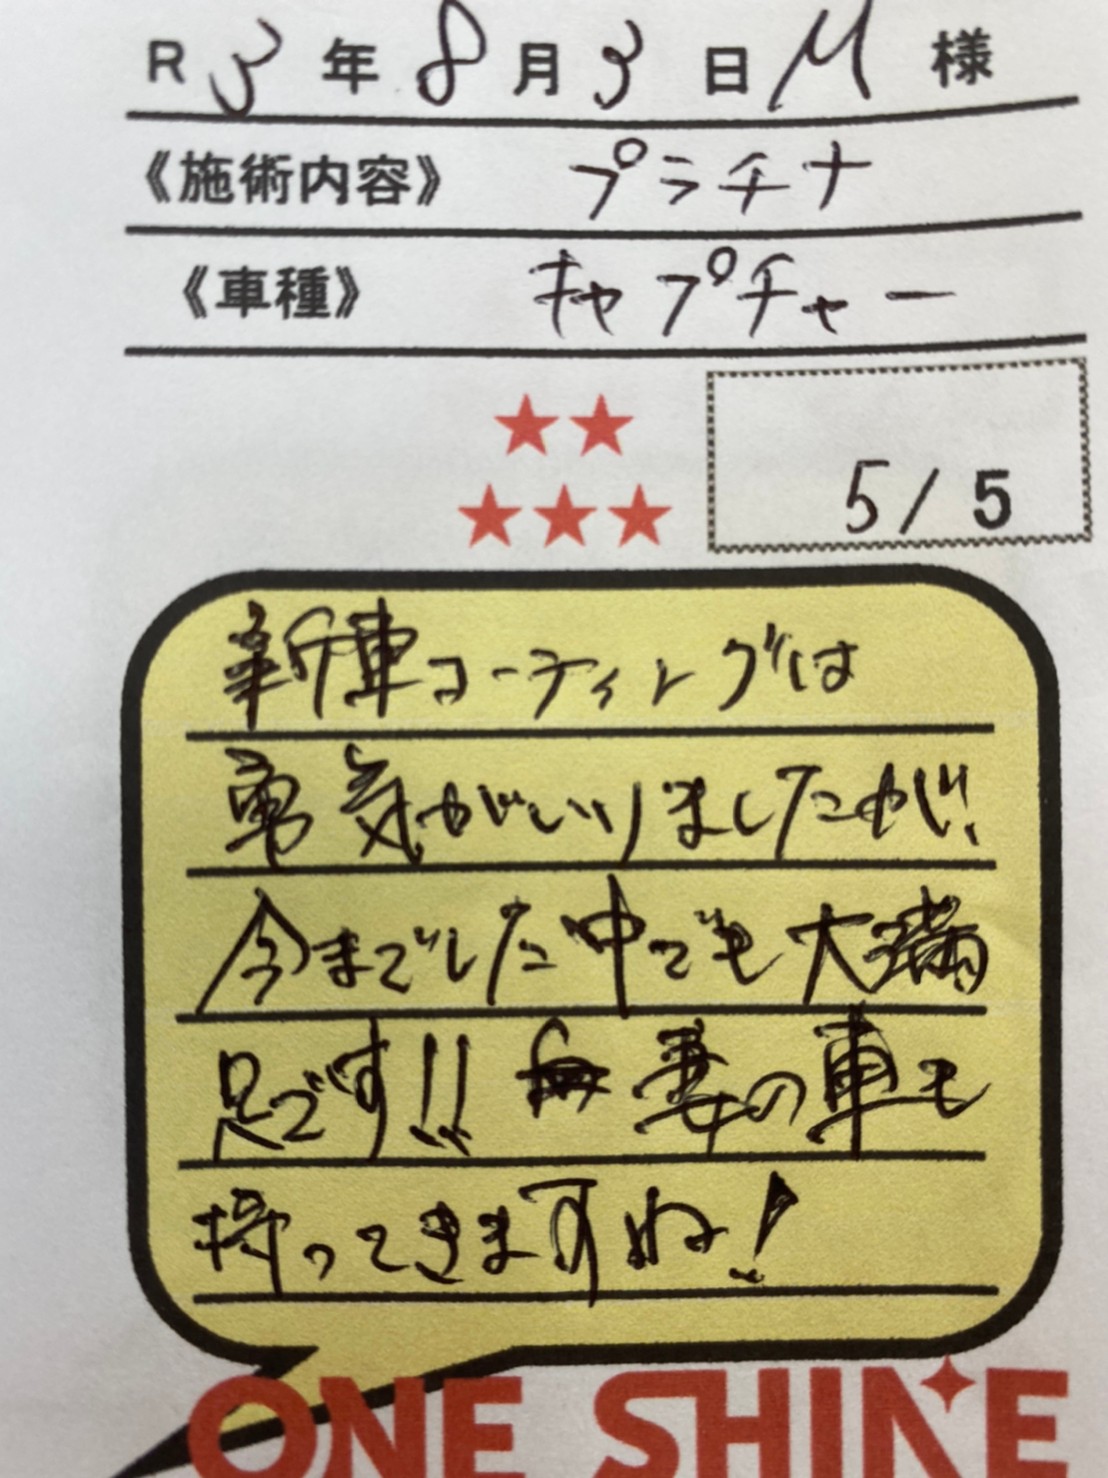 R3年8月3日M様
《施術内容》 プラチナ
《車種》 キャプチャー
5/5
新車コーティングは
勇気がいりましたが、
今までした中でも大満
足です!! 妻の車も
持ってきますね!
ONE SHINE